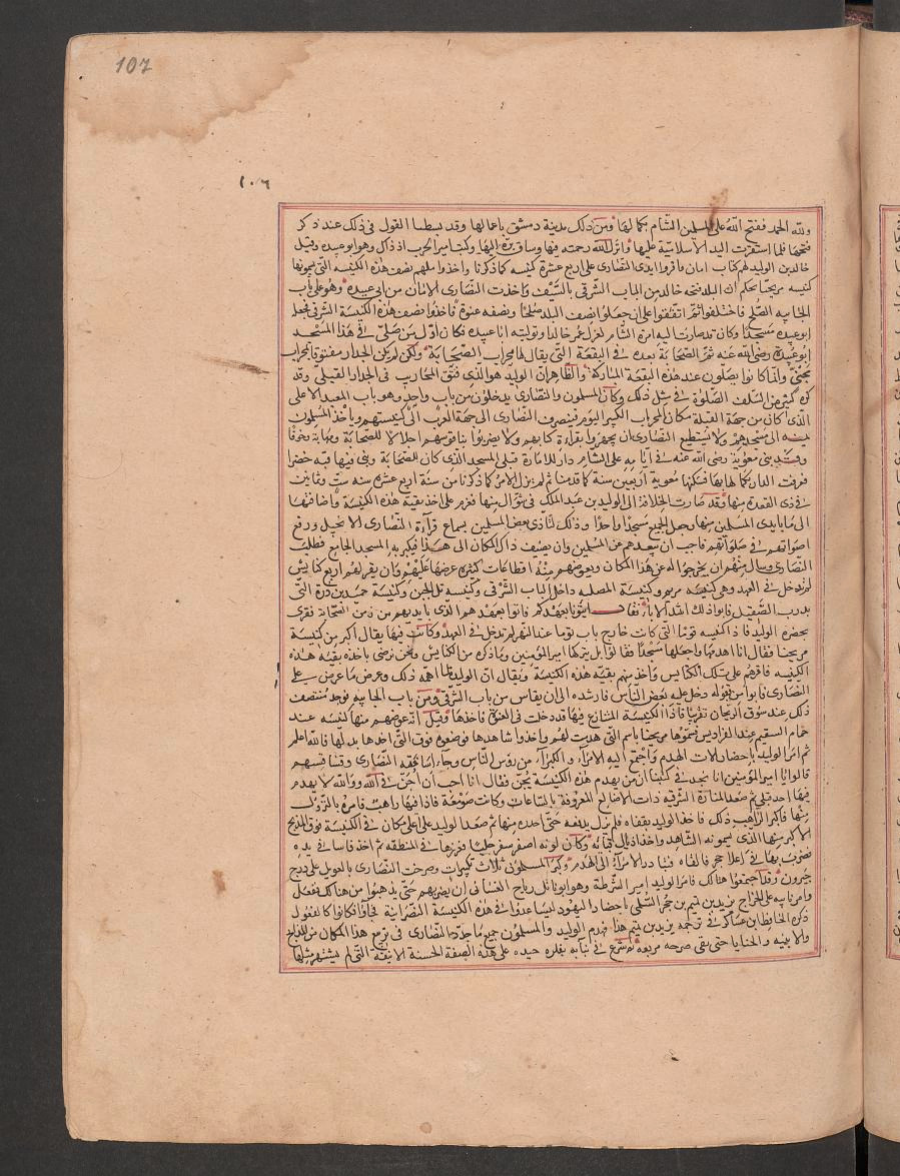 107
١٠٦
ولله الحمد ففتح الله على المسلمين الشام بكمالها ومن ذلك مدينة دمشق باعمالها وقد بسطنا القول في ذلك عند ذكر
فتحها فلما استقرت اليد الاسلامية عليها وانزل الله رحمته فيها وساق بره اليها وكتب امير الحرب اذ ذاك وهو ابو عبيده وقيل
خالد بن الوليد لهم كتاب امان فاقروا ايدي النصارى على اربع عشرة كنيسه كما ذكرنا واخذوا منهم نصف هذه الكنيسه التي يسمونها
كنيسه مريحنا بحكم ان البلد فتحه خالد من الباب الشرقي بالسيف واخذت النصارى الامان من ابي عبيده وهو على باب
الجابيه الصلح فاختلفوا ثم اتفقوا على ان جعلوا نصف البلد صلحا ونصفه عنوة فاخذوا نصف هذه الكنيسة الشرقي فجعله
ابو عبيده مسجدا وكان قد صارت اليه امرة الشام لعزل عمر خالدا وتوليته ابا عبيده فكان اول من صلى في هذا المسجد
ابو عبيدة رضي الله عنه ثم الصحابة بعده في البقعة التي يقال لها محراب الصحابة ولكن لم يكن الجدار مفتوقا بمحراب
محني وانما كانوا يصلون عند هذه البقعة المباركة والظاهر ان الوليد هو الذي فتق المحاريب في الجدار القبلي وقد
كره كثير من السلف الصلوة في مثل ذلك وكان المسلمون والنصارى يدخلون من باب واحد وهو باب المعبد الاعلى
الذي كان من جهة القبلة مكان المحراب الكبير اليوم فينصرف النصارى الى جهة الغرب الى كنيستهم وياخذ المسلمون
يمينه الى مسجدهم ولا يستطيع النصارى ان يجهروا بقراءة كتابهم ولا يضربوا بناقوسهم اجلالا للصحابة ومهابة وخوفا
وقد بنى معوية رضي الله عنه في ايامه على الشام دار للامارة قبلي المسجد الذي كان للصحابة وبنى فيها قبه خضرا
فعرفت الدار بكمالها بها فسكنها معوية اربعين سنة كما قدمنا ثم لم يزل الامر كما ذكرنا من سنة اربع عشره سنه ست وثمانين
في ذي القعدة منها وقد صارت الخلافة الى الوليد بن عبد الملك في شوال منها فعزم على اخذ بقية هذه الكنيسة واضافتها
الى ما بايدي المسلمين منها وجعل الجميع مسجدا واحدا وذلك لتاذى بعض المسلمين بسماع قرآءة النصارى الانجيل ورفع
اصواتهم في صلواتهم فاحب ان يبعدهم عن المسلمين وان يضيف ذاك المكان الى هذا فيكبر به المسجد الجامع فطلب
النصارى وسال منهم ان يخرجوا له عن هذا المكان ويعوضهم منه اقطاعات كثيرة عرضها عليهم وان يقر لهم اربع كنايس
لم تدخل في العهد وهي كنيسه مريم وكنيسة المصلبه داخل الباب الشرقي وكنيسه تل الجبن وكنيسة حميد بن درة التي
بدرب الصقيل فابوا ذلك اشد الاباء فقال ايتونا بعهدكم فاتوا بعهدهم الذي بايديهم من زمن الصحابة فقرئ
بحضرة الوليد فاذا كنيسه توما التي كانت خارج باب توما عند النهر لم تدخل في العهد وكانت فيما يقال اكبر من كنيسة
مريحنا فقال انا اهدمها واجعلها مسجدا فقالوا بل يتركها امير المؤمنين وما ذكر من الكنايس ونحن نرضى باخذه بقية هذه
الكنيسه فاقرهم على تلك الكنايس واخذ منهم بقية هذه الكنيسة ويقال ان الوليد لما اهمه ذلك وعرض ما عرض على
النصارى فابوا من قبوله دخل عليه بعض الناس فارشده الى ان يقاس من باب الشرقي ومن باب الجابيه فوجد منتصف
ذلك عند سوق الريحان تقريبا فاذا الكنيسة المتنازع فيها قد دخلت في العنوة فاخذها وقيل انه عوضهم منها كنيسه عند
حمام السقيم عند الفراديس فسموها مريحنا باسم التي هدمت لهم واخذوا شاهدها فوضعوه فوق التي اخذها بدلها فالله اعلم
ثم امر الوليد باحضار الات الهدم واجتمع اليه الامرآء والكبرآء من رؤس الناس وجاء اساقفه النصارى وقساقستهم
قالوا يا امير المؤمنين انا نجد في كتبنا ان من يهدم هذه الكنيسة يجن فقال انا احب ان اجن في الله ووالله لا يهدم
فيها احد قبلي ثم صعد المنارة الشرقيه ذات الاضالع المعروفة بالساعات وكانت صومعة فاذا فيها راهب فامره بالنزول
منها فاكبر الراهب ذلك فاخذ الوليد بقفاه فلم يزل يدفعه حتى احدره منها ثم صعد الوليد على اعلى مكان في الكنيسة فوق المذبح
الاكبر منها الذي يسمونه الشاهد واخذ اذيال قبائه وكان لونه اصفر سفرجليا فغرزها في المنطقه ثم اخذ فاسا في يده
فضرب بها في اعلا حجر فالقاه فتبادر الامرآء الى الهدم وكبر المسلمون ثلاث تكبيرات وصرخت النصارى بالعويل على درج
جيرون وقد اجتمعوا هنالك فامر الوليد امير الشرطة وهو ابو نائل رياح الغساني ان يضربهم حتى يذهبوا من هنالك ففعل
وامر نايبه على الخراج يزيد بن تميم بن حجر السلمي باحضار اليهود ليساعدوا في هدم الكنيسة النصرانية فجاؤا فكانوا كالفعول
ذكره الحافظ ابن عساكر في ترجمه يزيد بن تميم هذا فهدم الوليد والمسلمون جميع ما جدده النصارى في تربيع هذا المكان من المذابح
والابنيه والحنايا حتى بقي صرحه مربعه ثم شرع في بنائه بفكرة جيده على هذه الصفة الحسنة الانيقة التي لم يشتهر مثلها